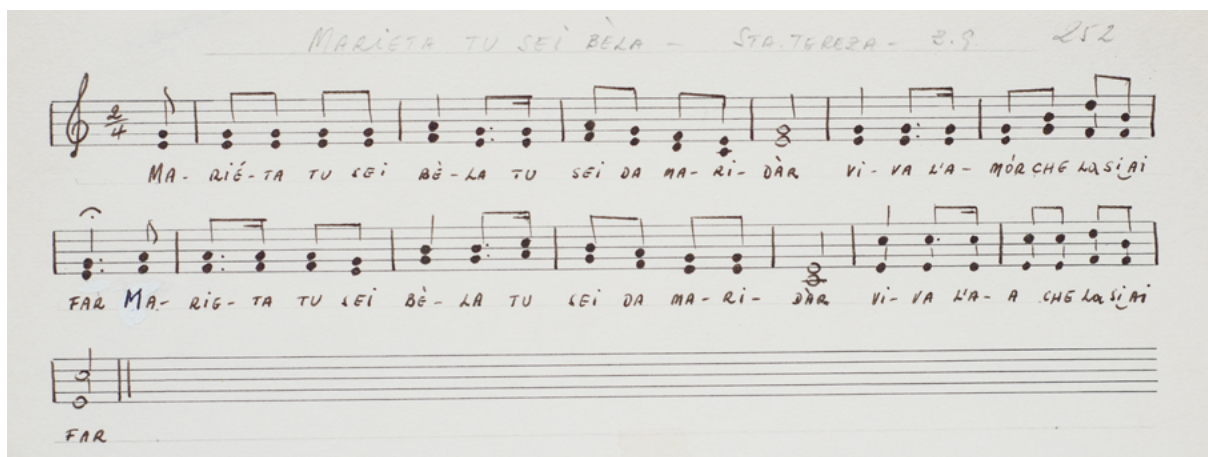 MARIETA TU SEI BÈLA - STA. TEREZA - Z.G. 252
2/4
MA- RIÉ-TA TU SEI BÈ-LA TU SEI DA MA-RI-DÀR VI-VA L'A-MÓR CHE LA SI AI
FAR MA-RIE-TA TU SEI BÈ-LA TU SEI DA MA-RI-DÀR VI-VA L'A-A CHE LA SI AI
FAR